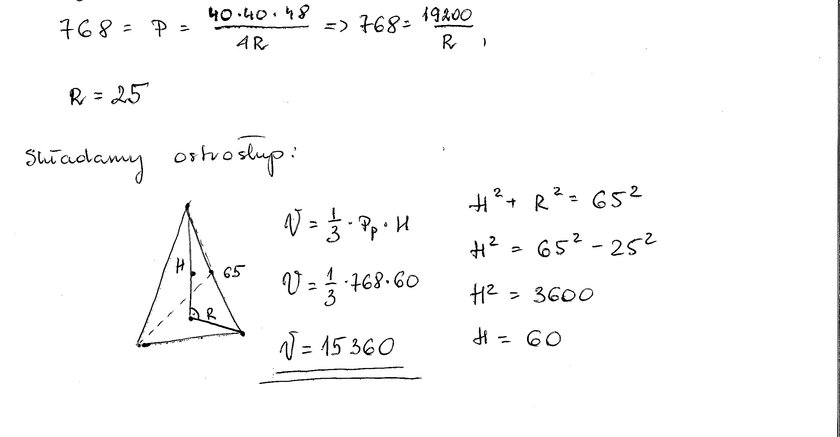 768 = P = \frac{40 \cdot 40 \cdot 48}{4R} => 768 = \frac{19200}{R},
R = 25
Składamy ostrosłup:
H
65
R
V = \frac{1}{3} \cdot P_p \cdot H
V = \frac{1}{3} \cdot 768 \cdot 60
V = 15360
H^2 + R^2 = 65^2
H^2 = 65^2 - 25^2
H^2 = 3600
H = 60